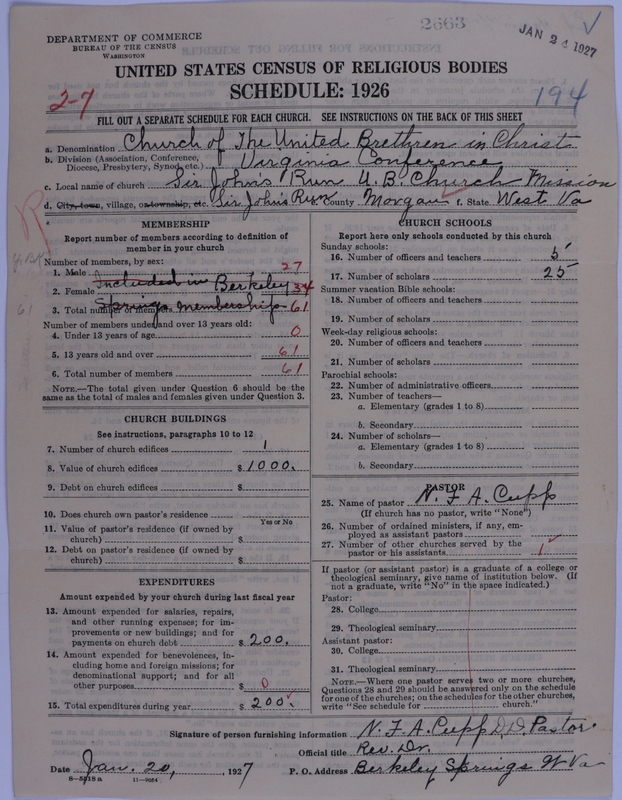 2663
JAN 24 1927
DEPARTMENT OF COMMERCE
BUREAU OF THE CENSUS
WASHINGTON
UNITED STATES CENSUS OF RELIGIOUS BODIES
SCHEDULE: 1926
2-7
194
FILL OUT A SEPARATE SCHEDULE FOR EACH CHURCH. SEE INSTRUCTIONS ON THE BACK OF THIS SHEET
a. Denomination Church of The United Brethren in Christ
b. Division (Association, Conference, Diocese, Presbytery, Synod, etc.) Virginia Conference
c. Local name of church Sir John's Run U.B. Church Mission
d. City, town, village, or township, etc. Sir John's Run County Morgan f. State West Va
MEMBERSHIP
Report number of members according to definition of
member in your church
Number of members, by sex:
1. Male 27
2. Female Included in Berkeley 34
3. Total number of members Springs membership 61
Number of members under and over 13 years old:
4. Under 13 years of age 0
5. 13 years old and over 61
6. Total number of members 61
NOTE.—The total given under Question 6 should be
same as the total of males and females given under Question 3.
CHURCH BUILDINGS
See instructions, paragraphs 10 to 12
7. Number of church edifices 1
8. Value of church edifices $ 1000.
9. Debt on church edifices $
10. Does church own pastor's residence
Yes or No
11. Value of pastor's residence (if owned by
church) $
12. Debt on pastor's residence (if owned by
church) $
EXPENDITURES
Amount expended by your church during last fiscal year
13. Amount expended for salaries, repairs,
and other running expenses; for im-
provements or new buildings; and for
payments on church debt $ 200.
14. Amount expended for benevolences, in-
cluding home and foreign missions; for
denominational support; and for all
other purposes $ 0
15. Total expenditures during year $ 200.
CHURCH SCHOOLS
Report here only schools conducted by this church
Sunday schools:
16. Number of officers and teachers 5
17. Number of scholars 25
Summer vacation Bible schools:
18. Number of officers and teachers
19. Number of scholars
Week-day religious schools:
20. Number of officers and teachers
21. Number of scholars
Parochial schools:
22. Number of administrative officers
23. Number of teachers—
a. Elementary (grades 1 to 8)
b. Secondary
24. Number of scholars—
a. Elementary (grades 1 to 8)
b. Secondary
PASTOR
25. Name of pastor N. F. A. Cupp
(If church has no pastor, write "None")
26. Number of ordained ministers, if any, em-
ployed as assistant pastors
27. Number of other churches served by the
pastor or his assistants 1
If pastor (or assistant pastor) is a graduate of a college or
theological seminary, give name of institution below. (If
not a graduate, write "No" in the space indicated.)
Pastor:
28. College
29. Theological seminary
Assistant pastor:
30. College
31. Theological seminary
NOTE.—Where one pastor serves two or more churches,
Questions 28 and 29 should be answered only on the schedule
for one of the churches; on the schedules for the other churches,
write "See schedule for church."
Signature of person furnishing information N. F. A. Cupp D.D. Pastor.
Official title Rev. Dr.
Date Jan. 20, 1927 P. O. Address Berkeley Springs W Va
8-5518a 11-9064